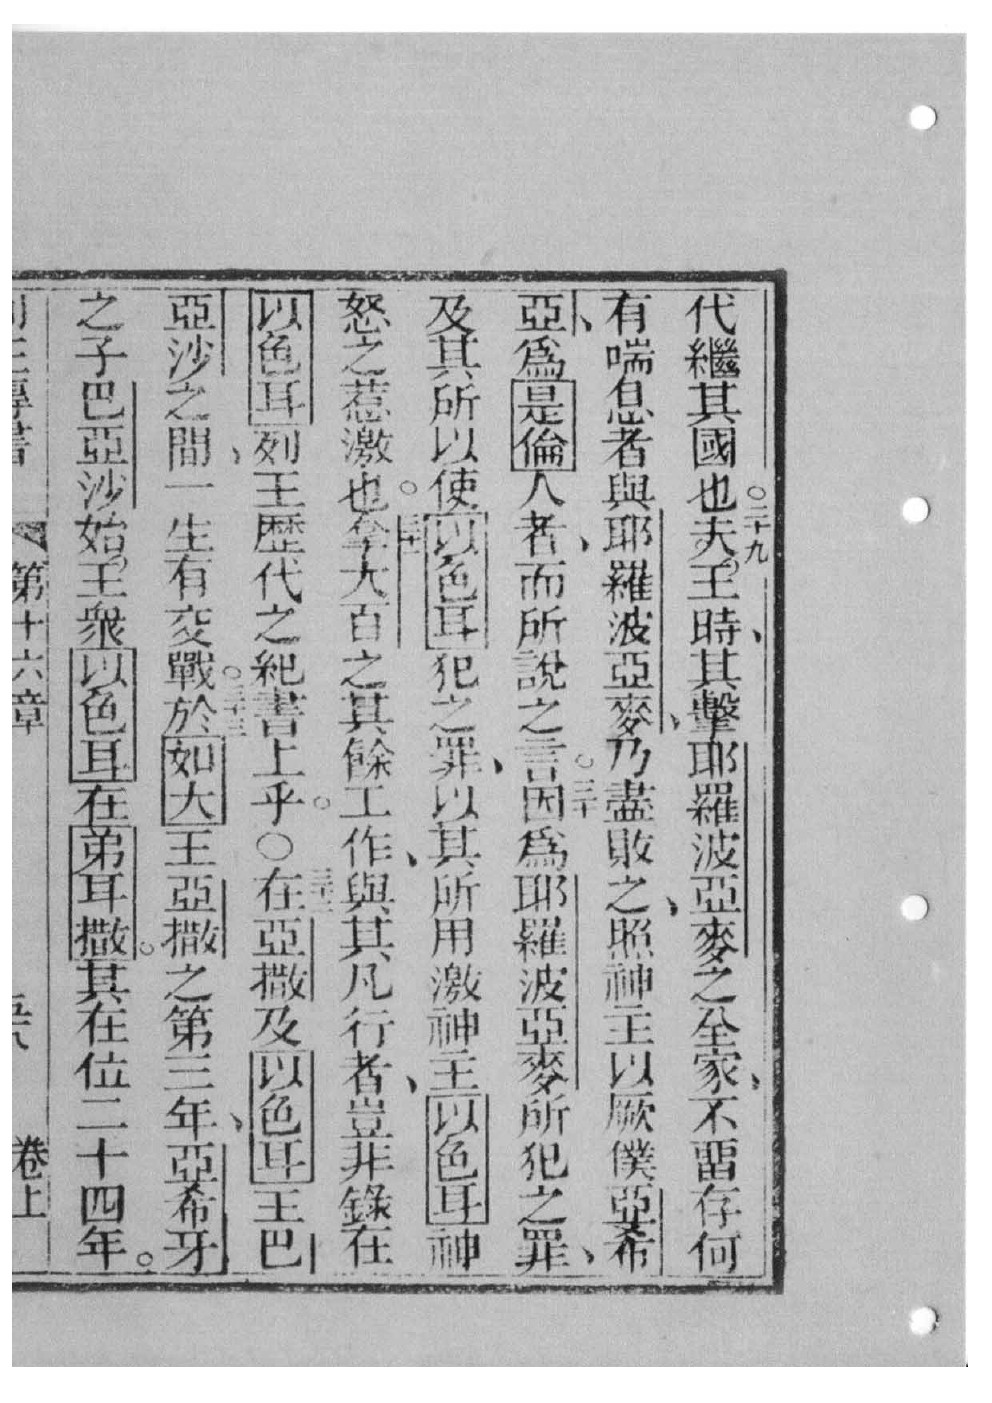 代繼其國也。二十九夫王時、其擊耶羅波亞麥之全家、不畱存何
有喘息者與耶羅波亞麥、乃盡敗之、照神主以厥僕亞希
亞、爲是倫人者、而所說之言。三十因爲耶羅波亞麥所犯之罪、
及其所以使以色耳犯之罪、以其所用激神主以色耳神
怒之惹激也。三十一拿大百之其餘工作、與其凡行者、豈非錄在
以色耳列王歷代之紀書上乎。○三十二在亞撒及以色耳王巴
亞沙之間、一生有交戰。三十三於如大王亞撒之第三年、亞希牙
之子巴亞沙始王衆以色耳在弟耳撒。其在位二十四年。
列王傳書 第十六章 卷上